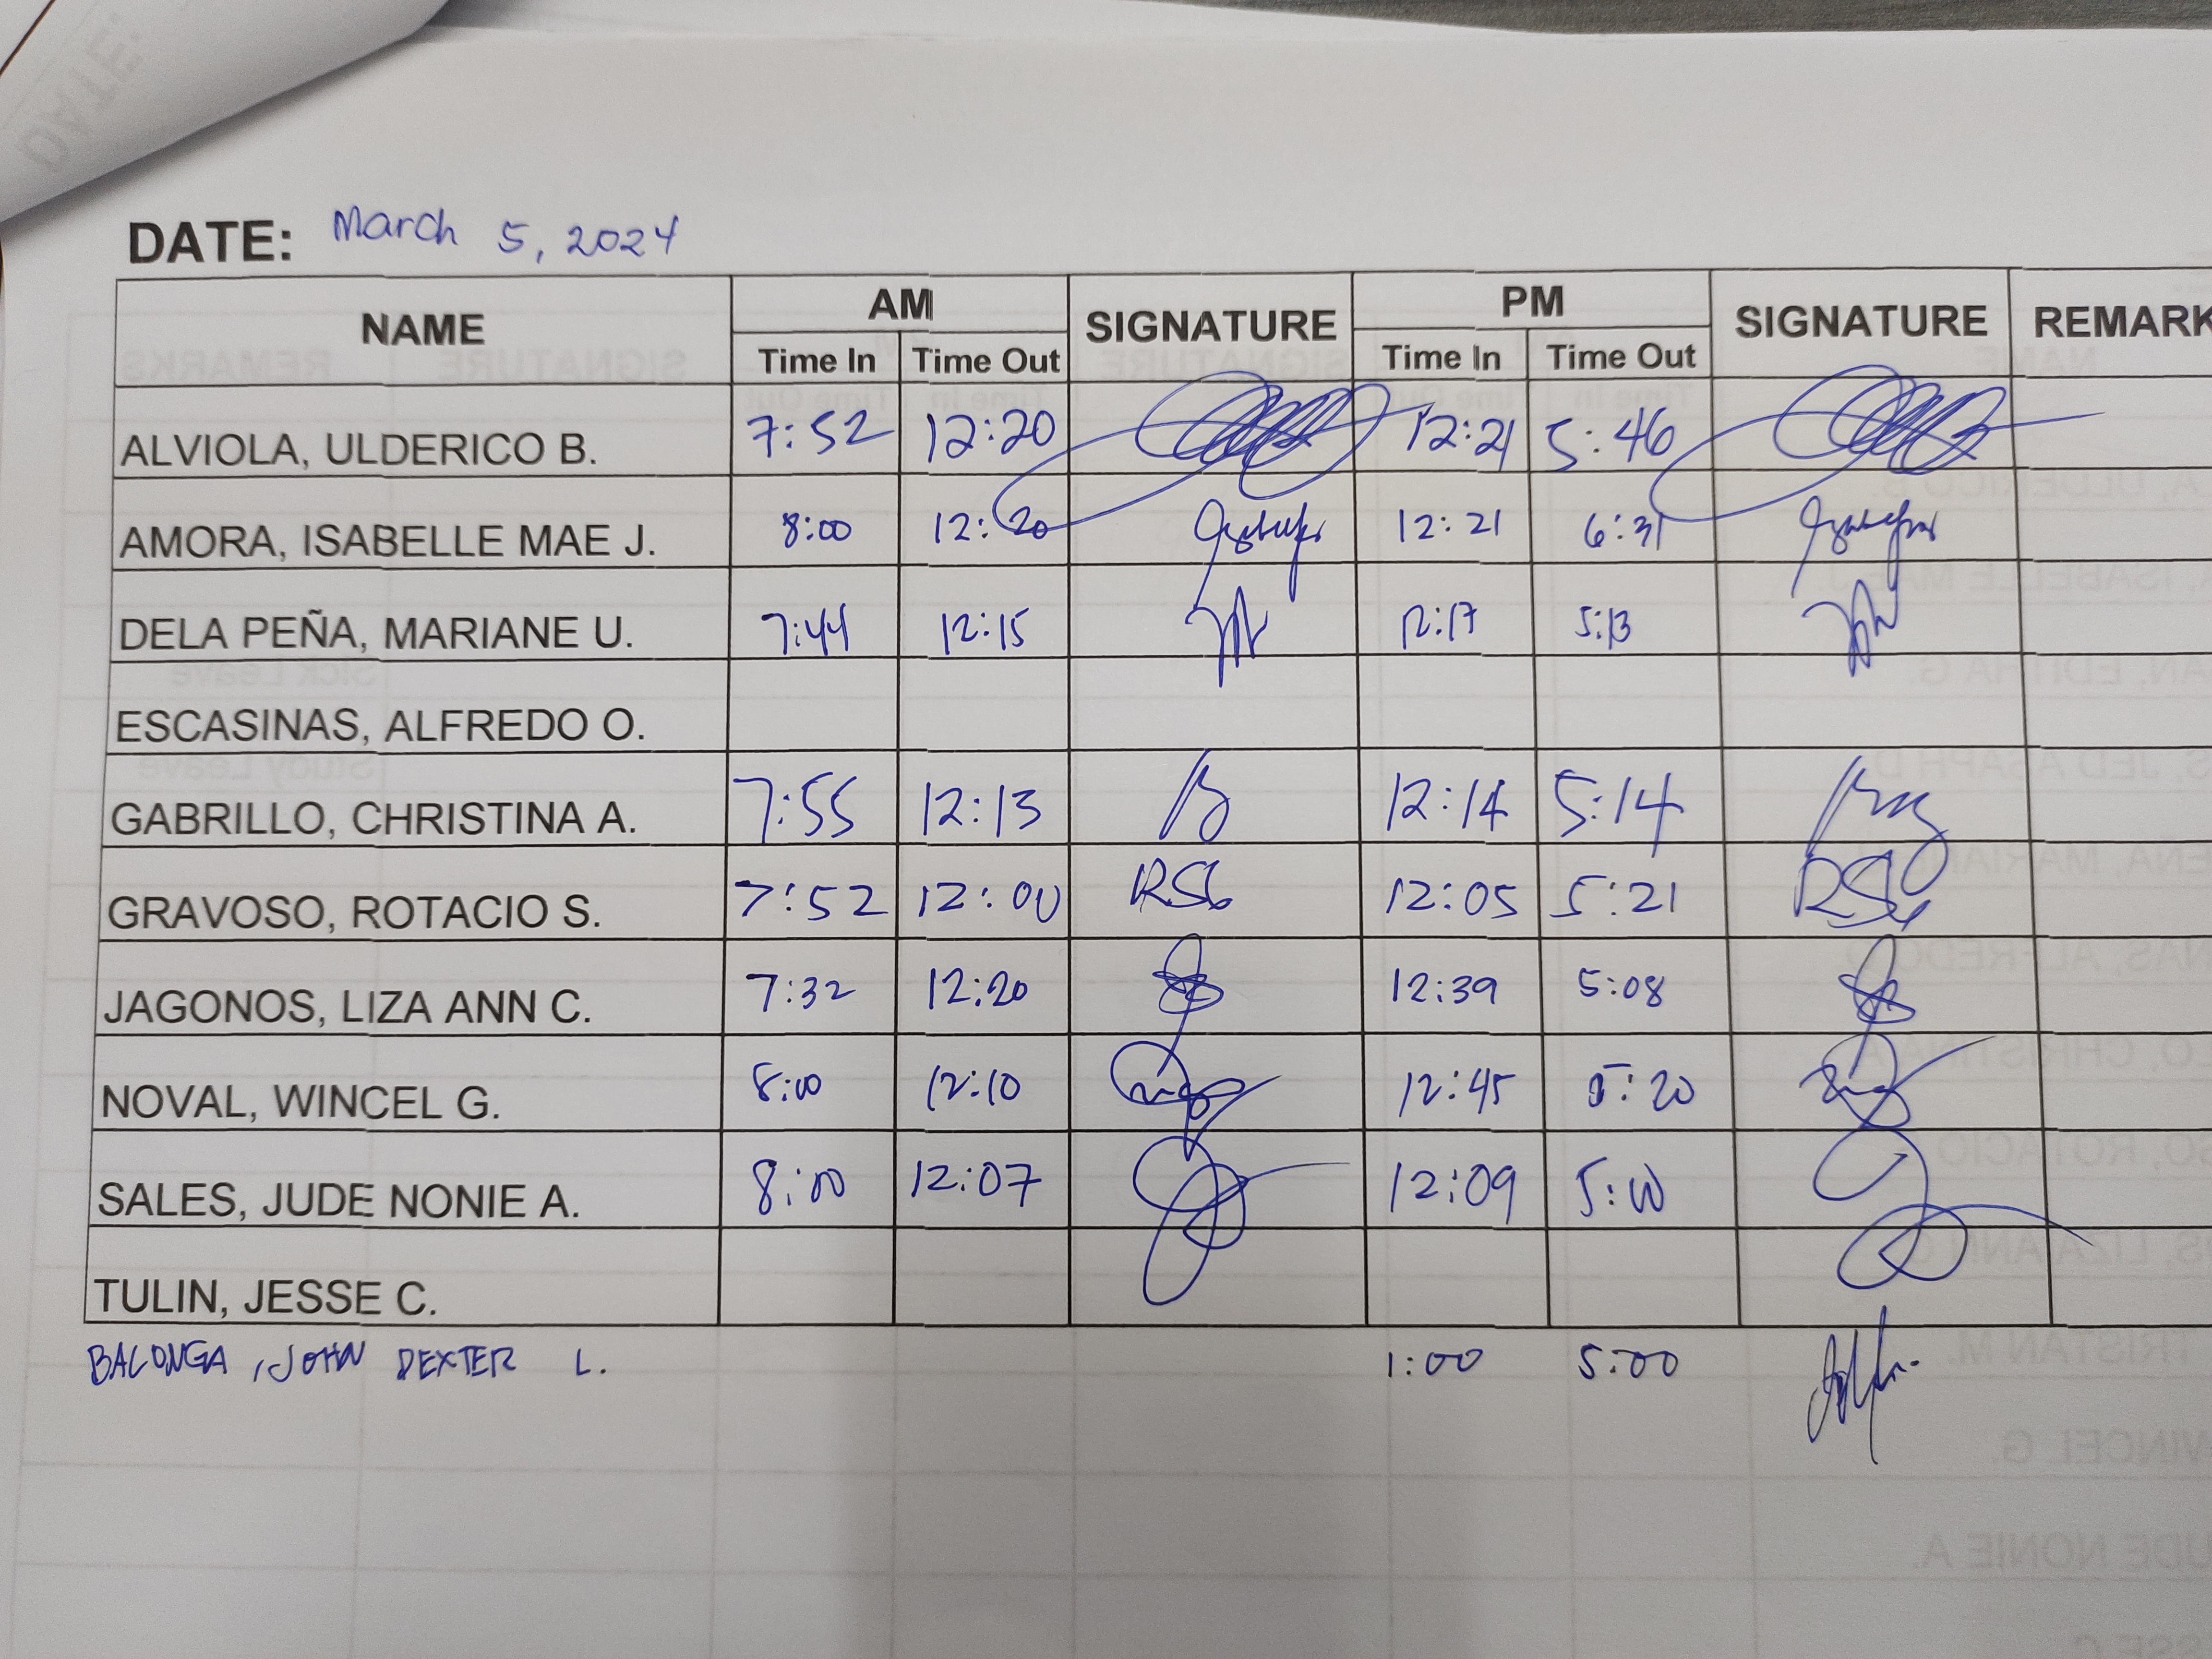 DATE:
DATE: March 5, 2024
NAME AM SIGNATURE PM SIGNATURE REMARK
Time In Time Out Time In Time Out
ALVIOLA, ULDERICO B. 7:52 12:20 12:21 5:46
AMORA, ISABELLE MAE J. 8:00 12:20 12:21 6:31
DELA PEÑA, MARIANE U. 7:44 12:15 12:17 5:13
ESCASINAS, ALFREDO O.
GABRILLO, CHRISTINA A. 7:55 12:13 12:14 5:14
GRAVOSO, ROTACIO S. 7:52 12:00 RSG 12:05 5:21 RSG
JAGONOS, LIZA ANN C. 7:32 12:20 12:39 5:08
NOVAL, WINCEL G. 8:00 12:10 12:45 5:20
SALES, JUDE NONIE A. 8:00 12:07 12:09 5:00
TULIN, JESSE C.
BALONGA, JOHN DEXTER L. 1:00 5:00